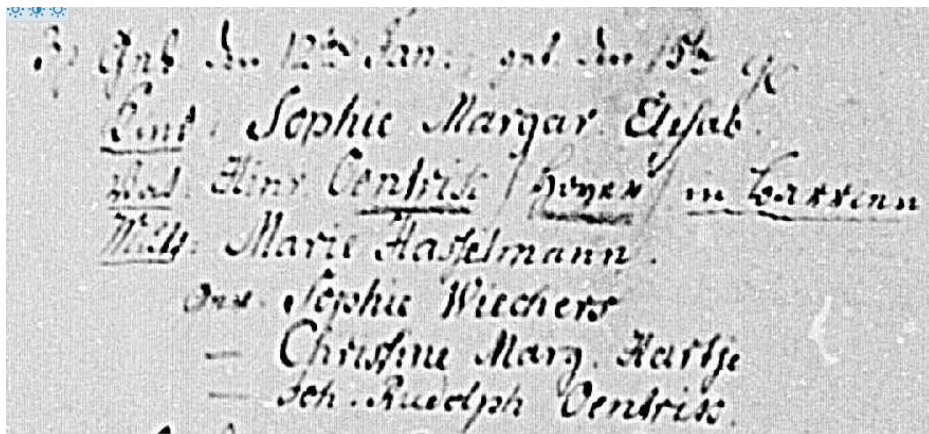 3) Geb den 12ten Jan., get. den 15ten ej.
Kind: Sophie Margar. Elisab.
Vat. Hinr. Oentrich / Hoyer / in Barrenn
Mutt. Marie Hasselmann.
Sophie Wiechers
— Christine Marg. Hartje
— Joh. Rudolph Oentrich.